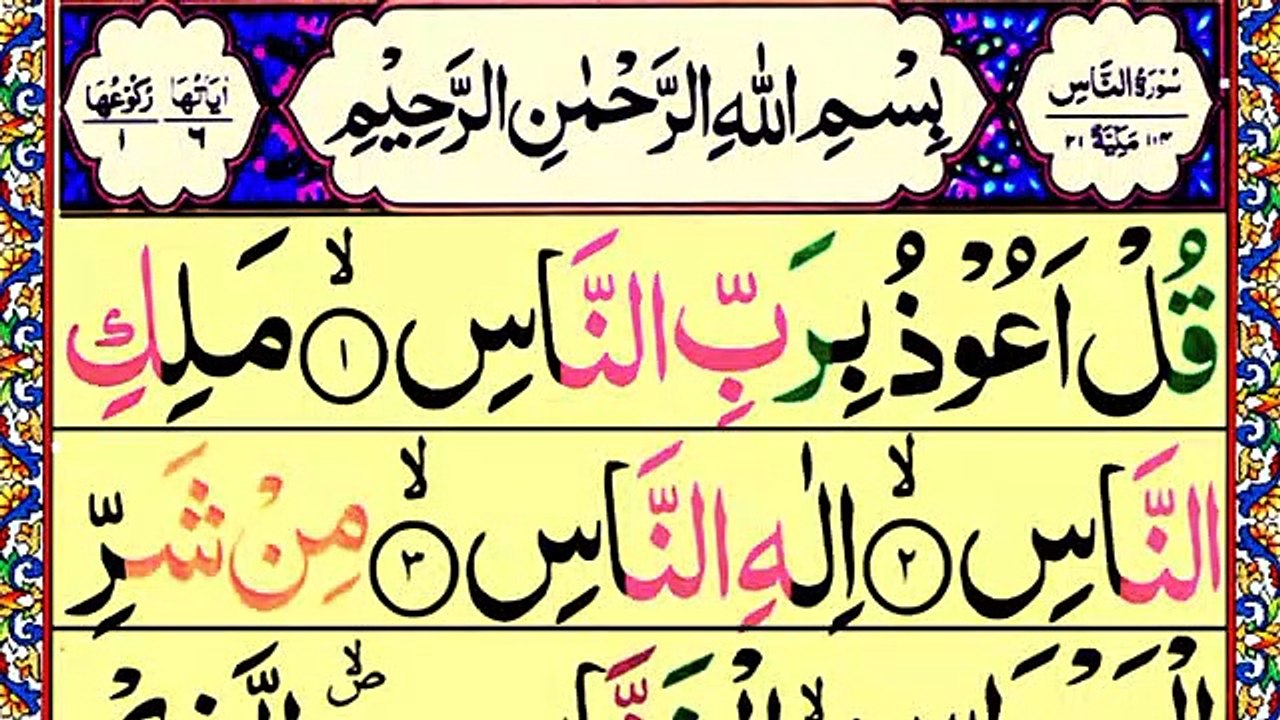 سُوْرَةُ النَّاسِ
١١٤ مَكِّيَّةٌ ٢١
بِسْمِ اللّٰهِ الرَّحْمٰنِ الرَّحِيْمِ
اٰيَاتُهَا ٦
رُكُوْعُهَا ١
قُلْ اَعُوْذُ بِرَبِّ النَّاسِ ۙ ١ مَلِكِ
النَّاسِ ۙ ٢ اِلٰهِ النَّاسِ ۙ ٣ مِنْ شَرِّ